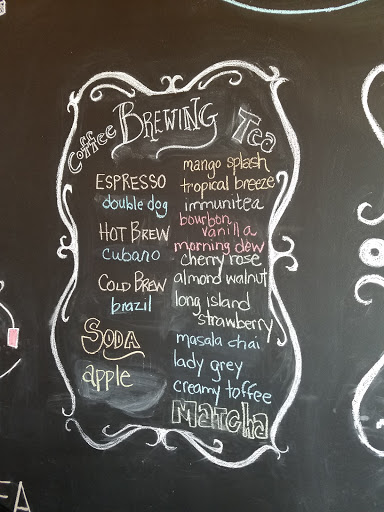 Coffee BREWING Tea
ESPRESSO
double dog
HOT BREW
cubano
COLD BREW
brazil
SODA
apple
mango splash
tropical breeze
immunitea
bourbon
vanilla
morning dew
cherry rose
almond walnut
long island
strawberry
masala chai
lady grey
creamy toffee
MATCHA
EA